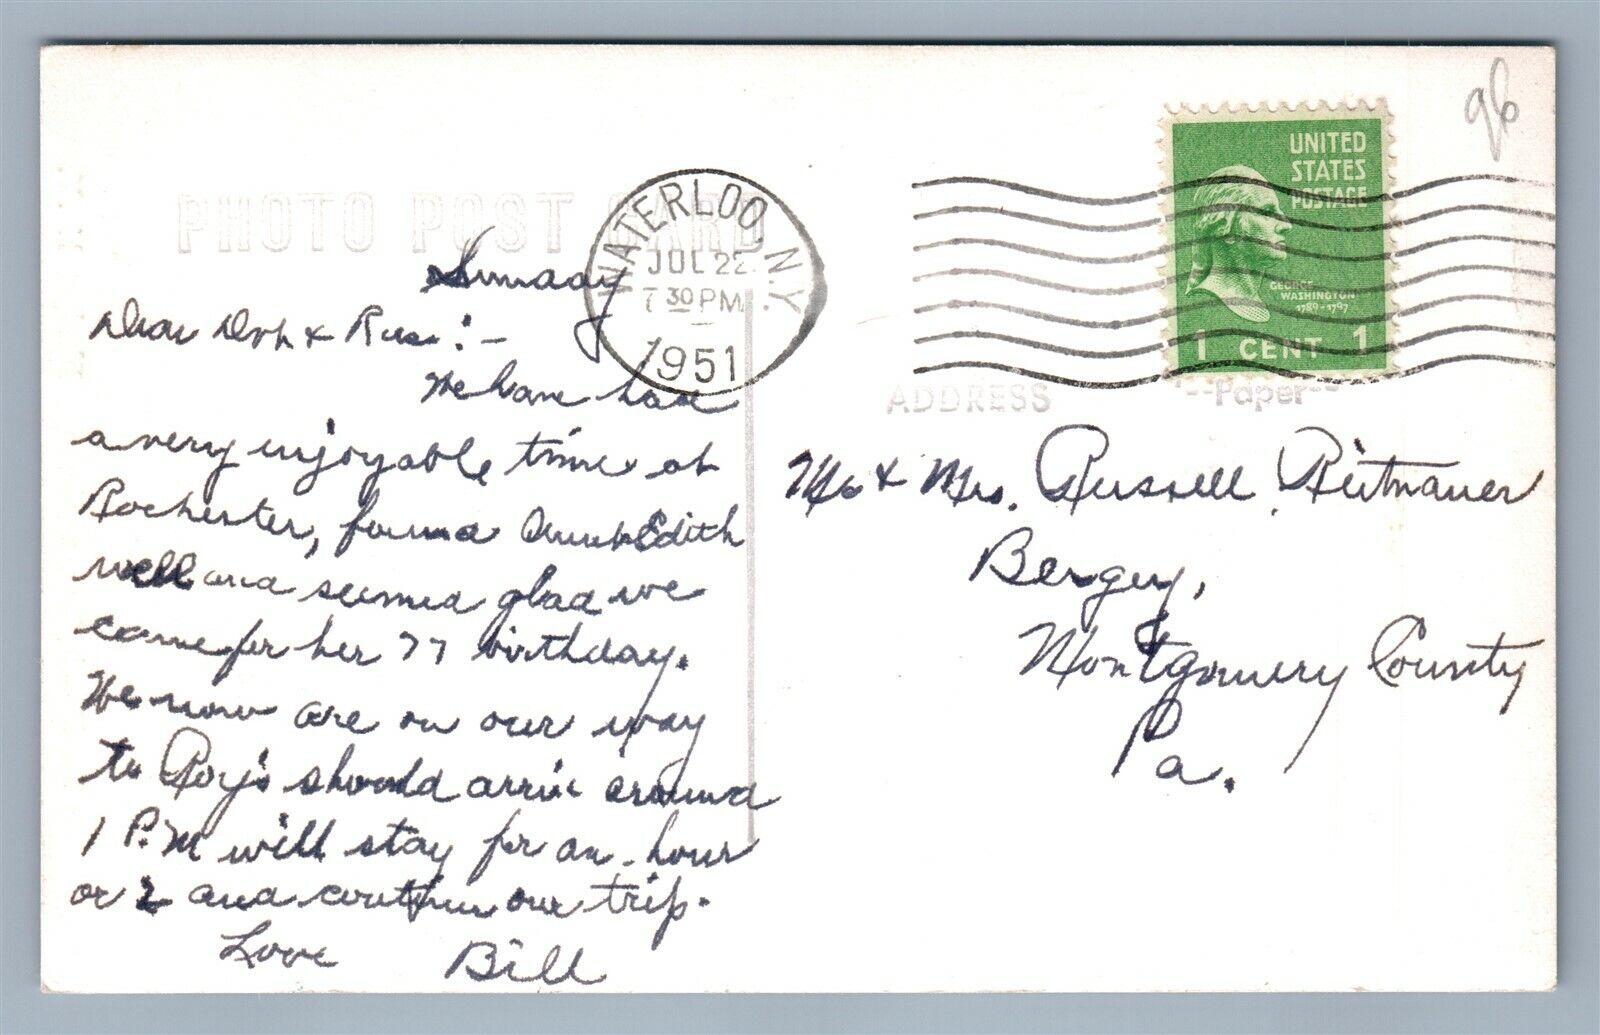 PHOTO POST CARD
WATERLOO, N.Y.
JUL 22
7 30 PM
1951
UNITED
STATES
POSTAGE
GEORGE
WASHINGTON
1789-1797
1 CENT 1
96
ADDRESS
--Paper--
Sunday
Dear Dot & Russ:-
We have had
a very enjoyable time at
Rochester, found Aunt Edith
well and seemed glad we
came for her 77 birthday.
We now are on our way
to Roy's should arrive around
1 P.M will stay for an hour
or 2 and continue our trip.
Love Bill
Mr & Mrs. Russell Reitnauer
Bergey,
Montgomery County
Pa.